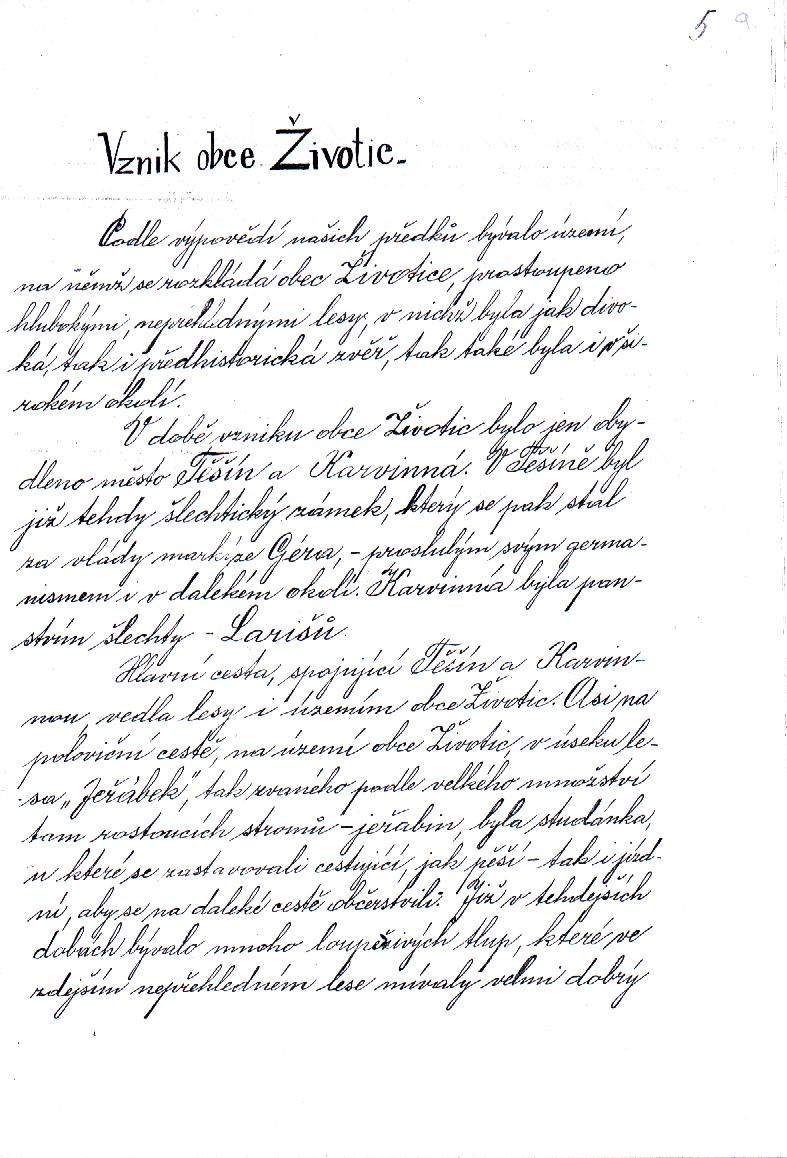 5 a
Vznik obce Životic.
Podle výpovědí našich předků bývalo území,
na němž se rozkládá obec Životice, prostoupeno
hlubokými, nepřehlednými lesy, v nichž byla jak divo-
ká, tak i předhistorická zvěř, tak také byla i v ši-
rokém okolí.
V době vzniku obce Životic bylo jen oby-
dleno město Těšín a Karvinná. V Těšíně byl
již tehdy šlechtický zámek, který se pak stal
za vlády markýze Géra, - proslulým svým germa-
nismem i v dalekém okolí. Karvinná byla pan-
stvím šlechty - Larišů.
Hlavní cesta, spojující Těšín a Karvin-
nou, vedla lesy i územím obce Životic. Asi na
poloviční cestě, na území obce Životic, v úseku le-
sa „Jeřábek", tak zvaného podle velkého množství
tam rostoucích stromů - jeřabin, byla studánka,
u které se zastavovali cestující, jak pěší - tak i jízd-
ní, aby se na daleké cestě občerstvili. Již v tehdejších
dobách bývalo mnoho loupeživých tlup, které ve
zdejším nepřehledném lese mívaly velmi dobrý